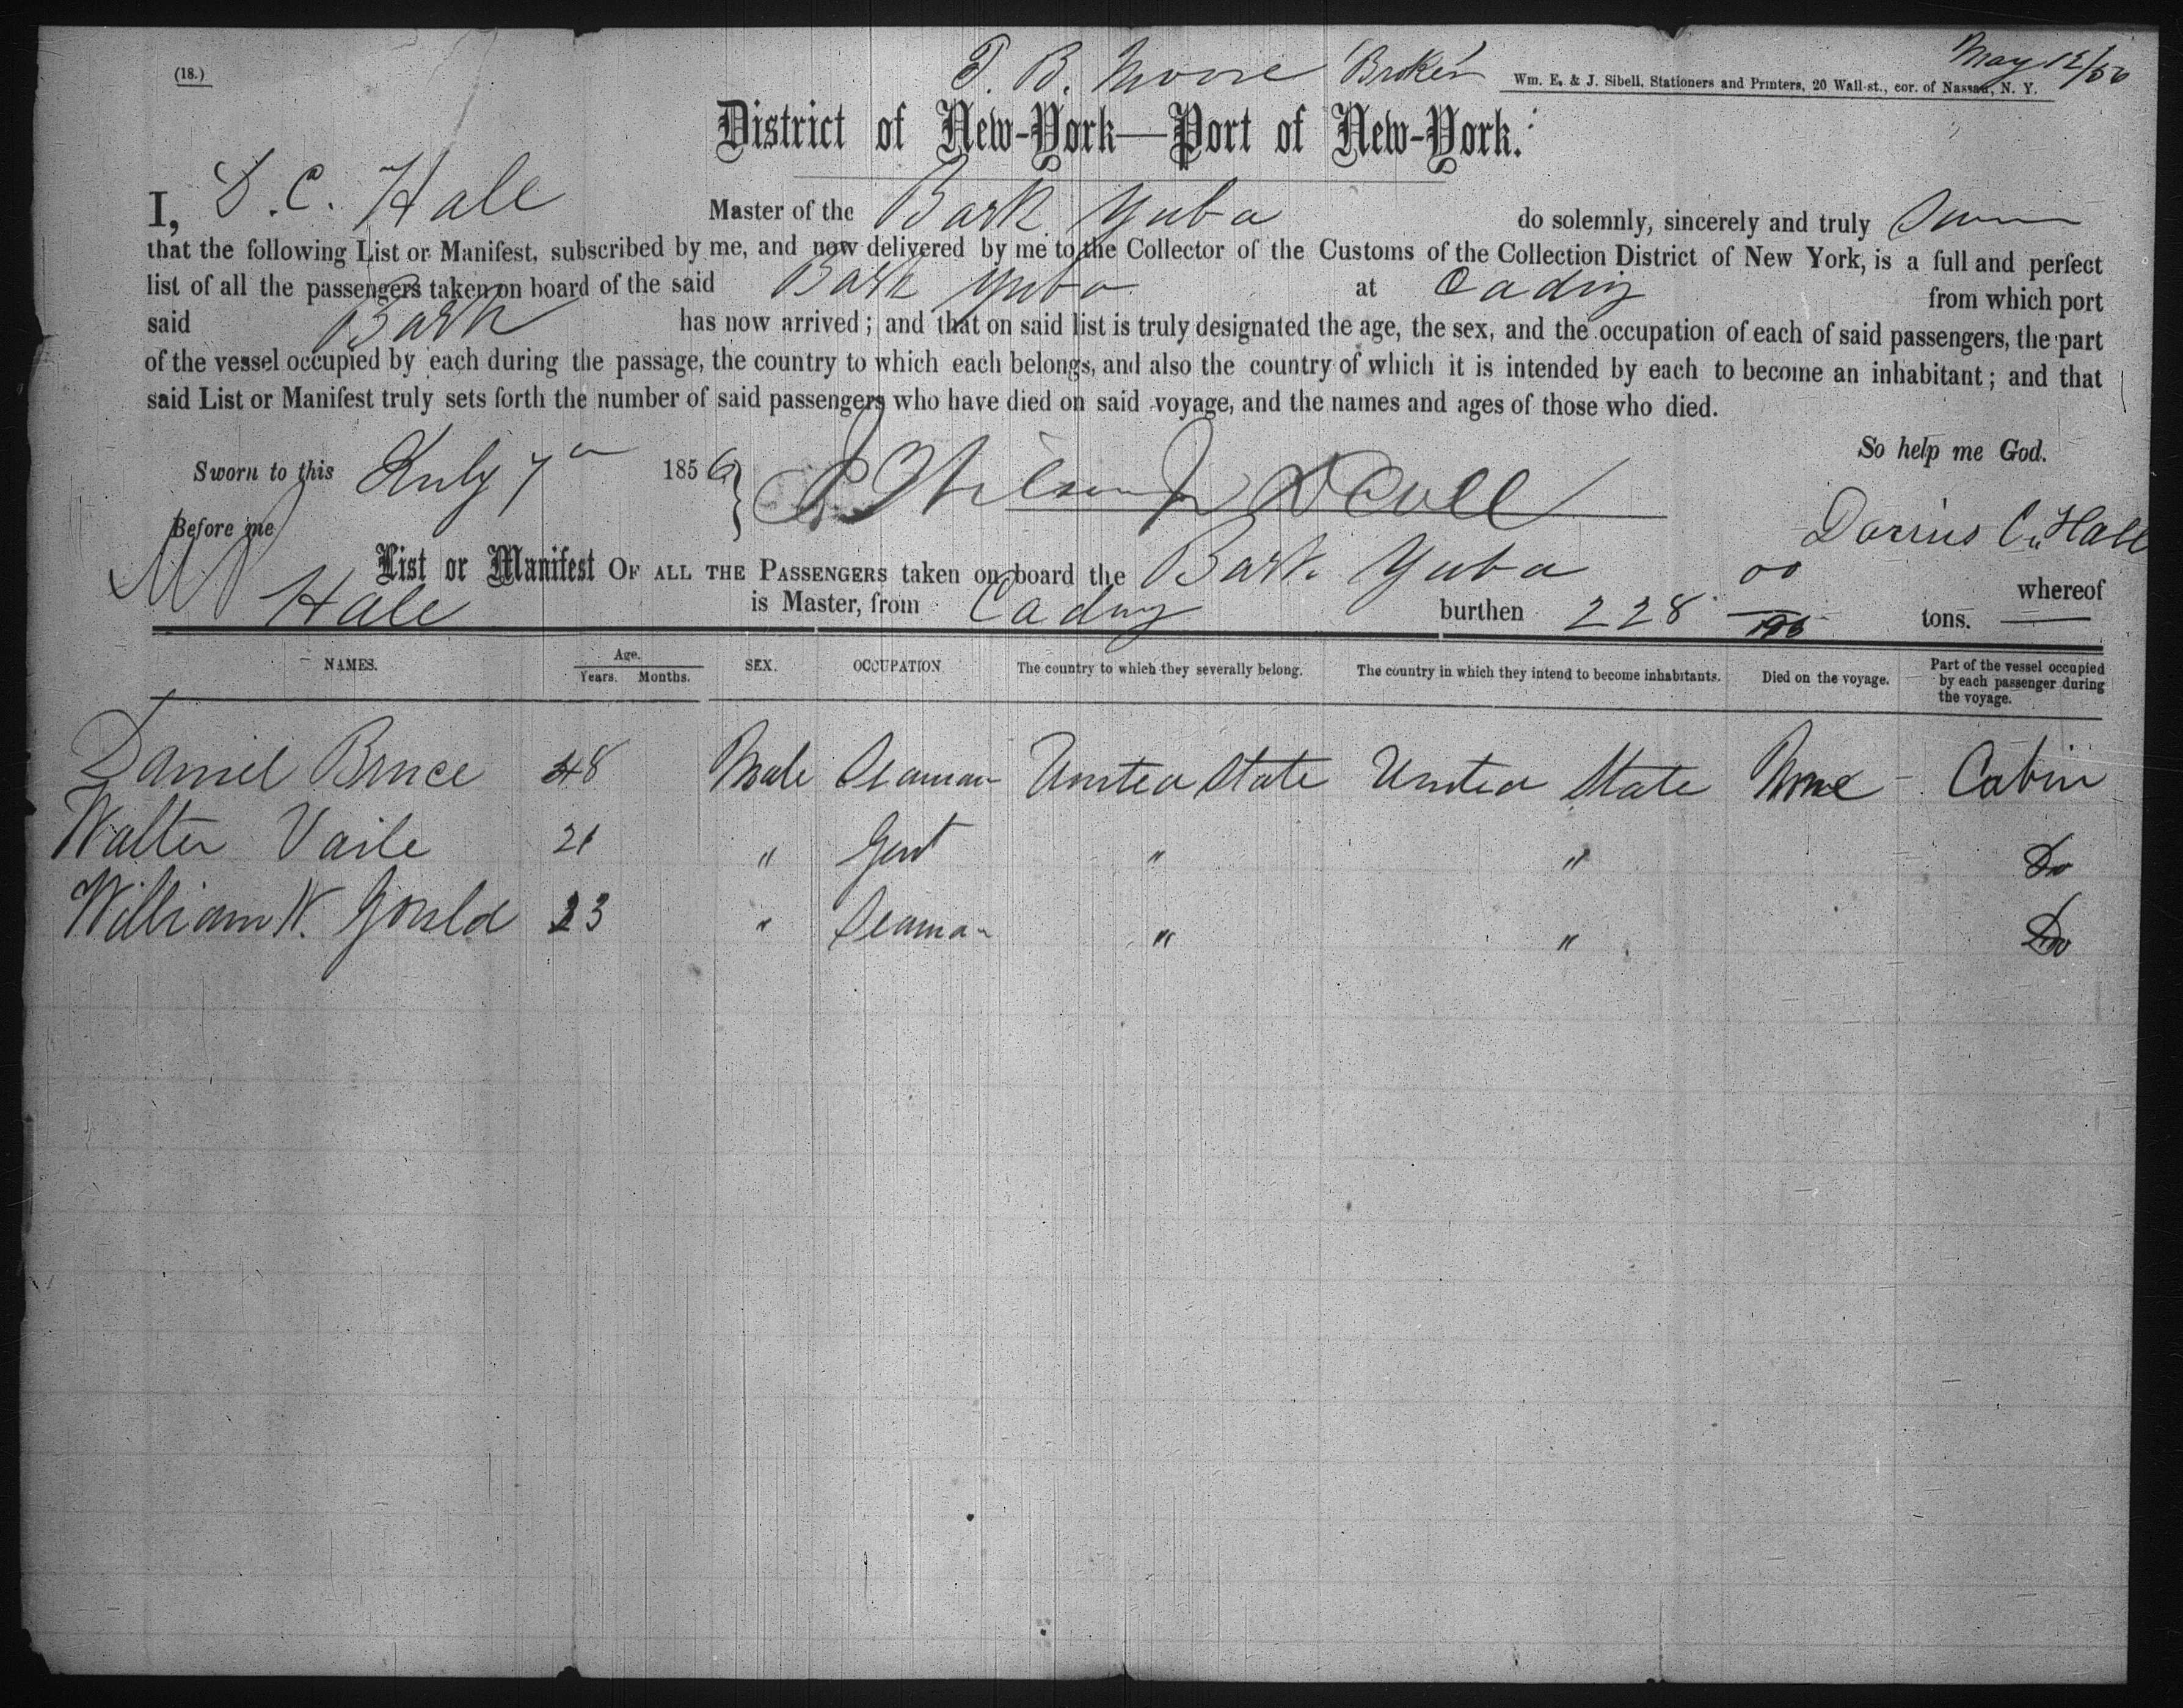 (18.)
T. B. Moore Broker
May 12/56
Wm. E. & J. Sibell, Stationers and Printers, 20 Wall-st., cor. of Nassau, N. Y.
District of New-York—Port of New-York.
I, D. C. Hale Master of the Bark Yuba do solemnly, sincerely and truly
that the following List or Manifest, subscribed by me, and now delivered by me to the Collector of the Customs of the Collection District of New York, is a full and perfect
list of all the passengers taken on board of the said Bark Yuba at Cadiz from which port
said Bark has now arrived; and that on said list is truly designated the age, the sex, and the occupation of each of said passengers, the part
of the vessel occupied by each during the passage, the country to which each belongs, and also the country of which it is intended by each to become an inhabitant; and that
said List or Manifest truly sets forth the number of said passengers who have died on said voyage, and the names and ages of those who died.
So help me God.
Sworn to this July 7 1856
Before me
Darius C. Hall
List or Manifest OF ALL THE PASSENGERS taken on board the Bark Yuba whereof
Hale is Master, from Cadiz burthen 228 00 tons.
NAMES. Age. Years. Months. SEX. OCCUPATION The country to which they severally belong. The country in which they intend to become inhabitants. Died on the voyage. Part of the vessel occupied by each passenger during the voyage.
Daniel Bruce 48 Male Seaman United State United State None Cabin
Walter Vaile 21 " Gent " " Do
William W. Gould 23 " Seaman " " Do